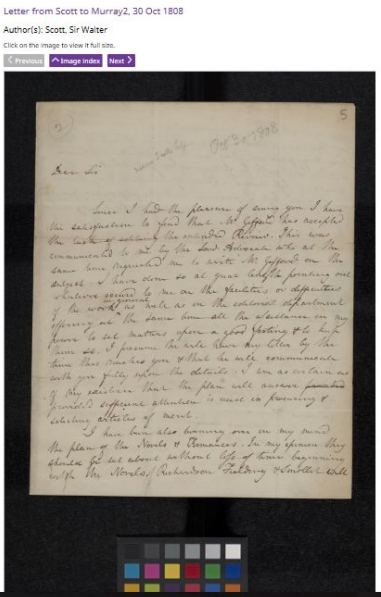 Letter from Scott to Murray2, 30 Oct 1808
Author(s): Scott, Sir Walter
Click on the image to view it full size.
Previous
Image index
Next
5
2
Octr 30 1808
Dear Sir
Since I had the pleasure of seeing you I have
the satisfaction to find that Mr Gifford has accepted
the task of editing the intended Review. This was
communicated to me by the Lord Advocate who at the
same time requested me to write Mr Gifford on the
subject. I have done so at great length pointing out
whatever occurd to me on the facilities or difficulties
of the work in general as well as on the editorial department
offering at the same time all the assistance in my
power to set matters upon a good footing & to keep
them so. I presume he will have my letter by the
time this reaches you & that he will communicate
with you fully upon the details. I am as certain as
of my existence that the plan will answer
provided sufficient attention is used in procuring &
selecting articles of merit.
I have been also turning over in my mind
the plan of the Novels & Romances. In my opinion they
should be set about without loss of time beginning
with the Novels of Richardson Fielding & Smollet